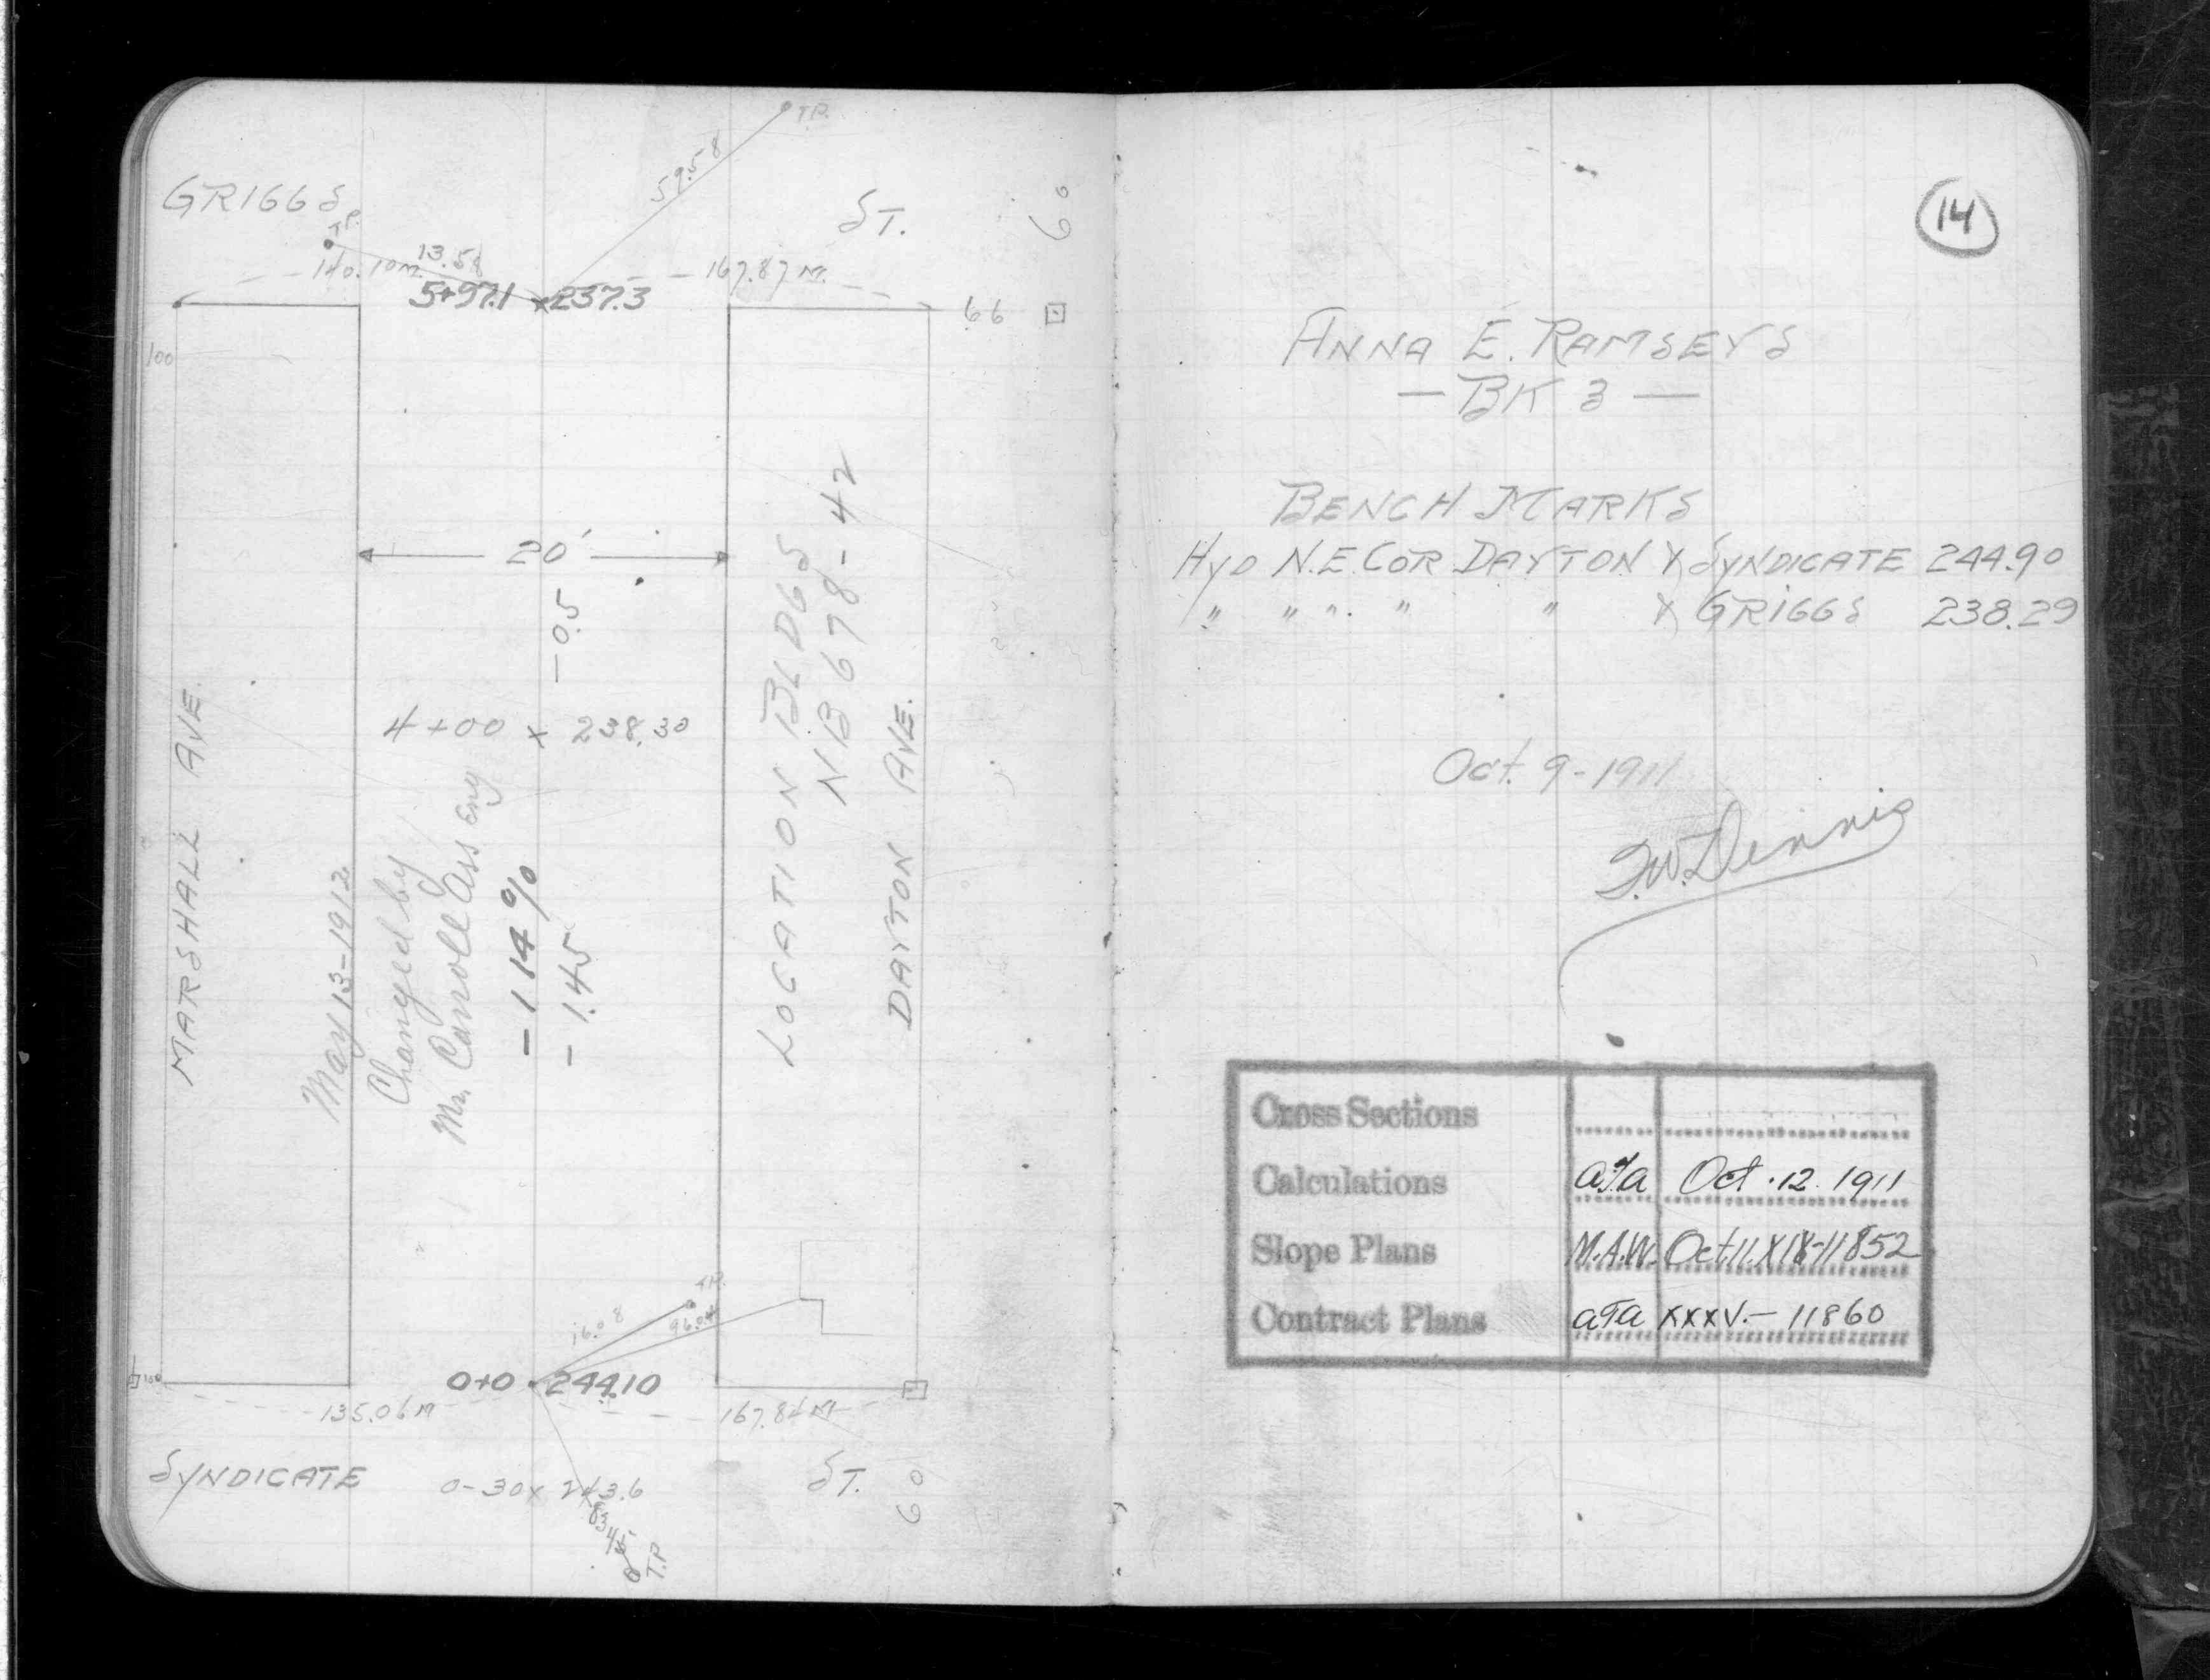 T.P.
59.58
GRIGGS
ST.
60
T.P.
13.58
140.10 M.
167.87 M.
5+97.1 x 237.3
66
100
20'
-0.5
4+00 x 238.30
LOCATION BLDGS
NB 678-42
MARSHALL AVE.
DAYTON AVE.
May 13-1912
Changed by
Mr. Carroll Ass Eng
-1.14%
-1.45
T.P.
16.08
96.04
100
0+0 244.10
135.06 M
167.84 M
SYNDICATE
ST.
60
0-30 x 243.6
83.45
T.P.
14
ANNA E. RAMSEYS
— BK 3 —
BENCH MARKS
HYD N.E. COR DAYTON X SYNDICATE 244.90
" " " " " X GRIGGS 238.29
Oct. 9-1911
F.W. Dennis
Cross Sections
Calculations aTa Oct. 12. 1911
Slope Plans M.A.W. Oct 11. XIX-11852
Contract Plans aTa XXXV.- 11860